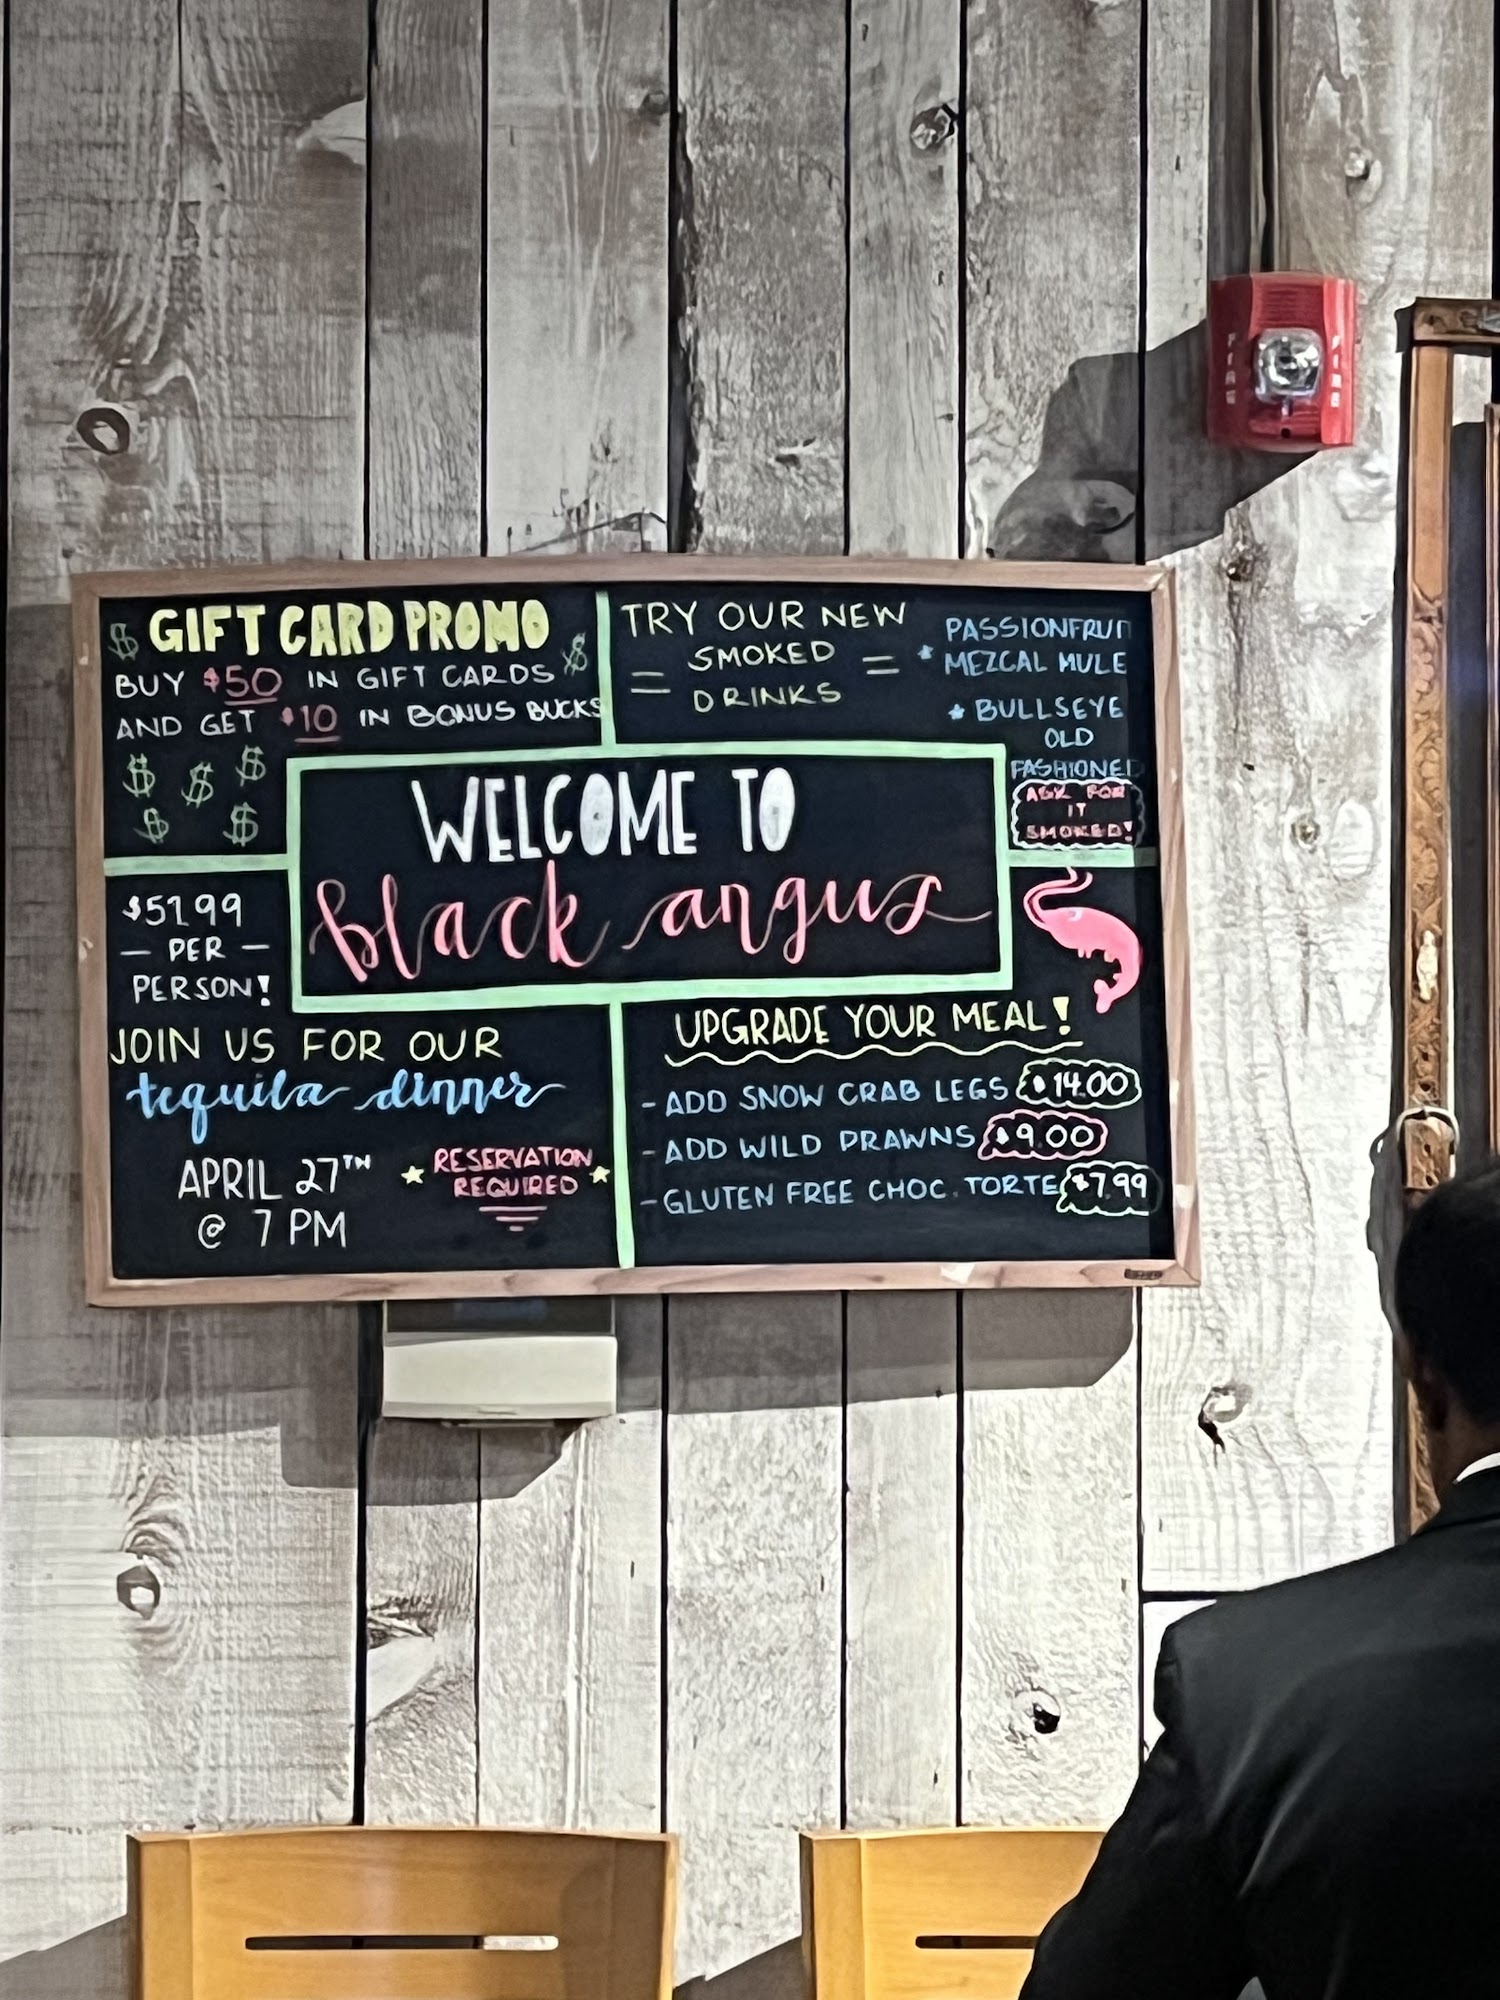 GIFT CARD PROMO
BUY $50 IN GIFT CARDS
AND GET $10 IN BONUS BUCKS
TRY OUR NEW
SMOKED
DRINKS
PASSIONFRUIT
MEZCAL MULE
BULLSEYE
OLD
FASHIONED
ASK FOR
IT
SMOKED!
WELCOME TO
black angus
$51.99
PER
PERSON!
JOIN US FOR OUR
tequila dinner
APRIL 27TH
@ 7 PM
RESERVATION
REQUIRED
UPGRADE YOUR MEAL!
- ADD SNOW CRAB LEGS $14.00
- ADD WILD PRAWNS $9.00
- GLUTEN FREE CHOC. TORTE $7.99
FIRE
FIRE